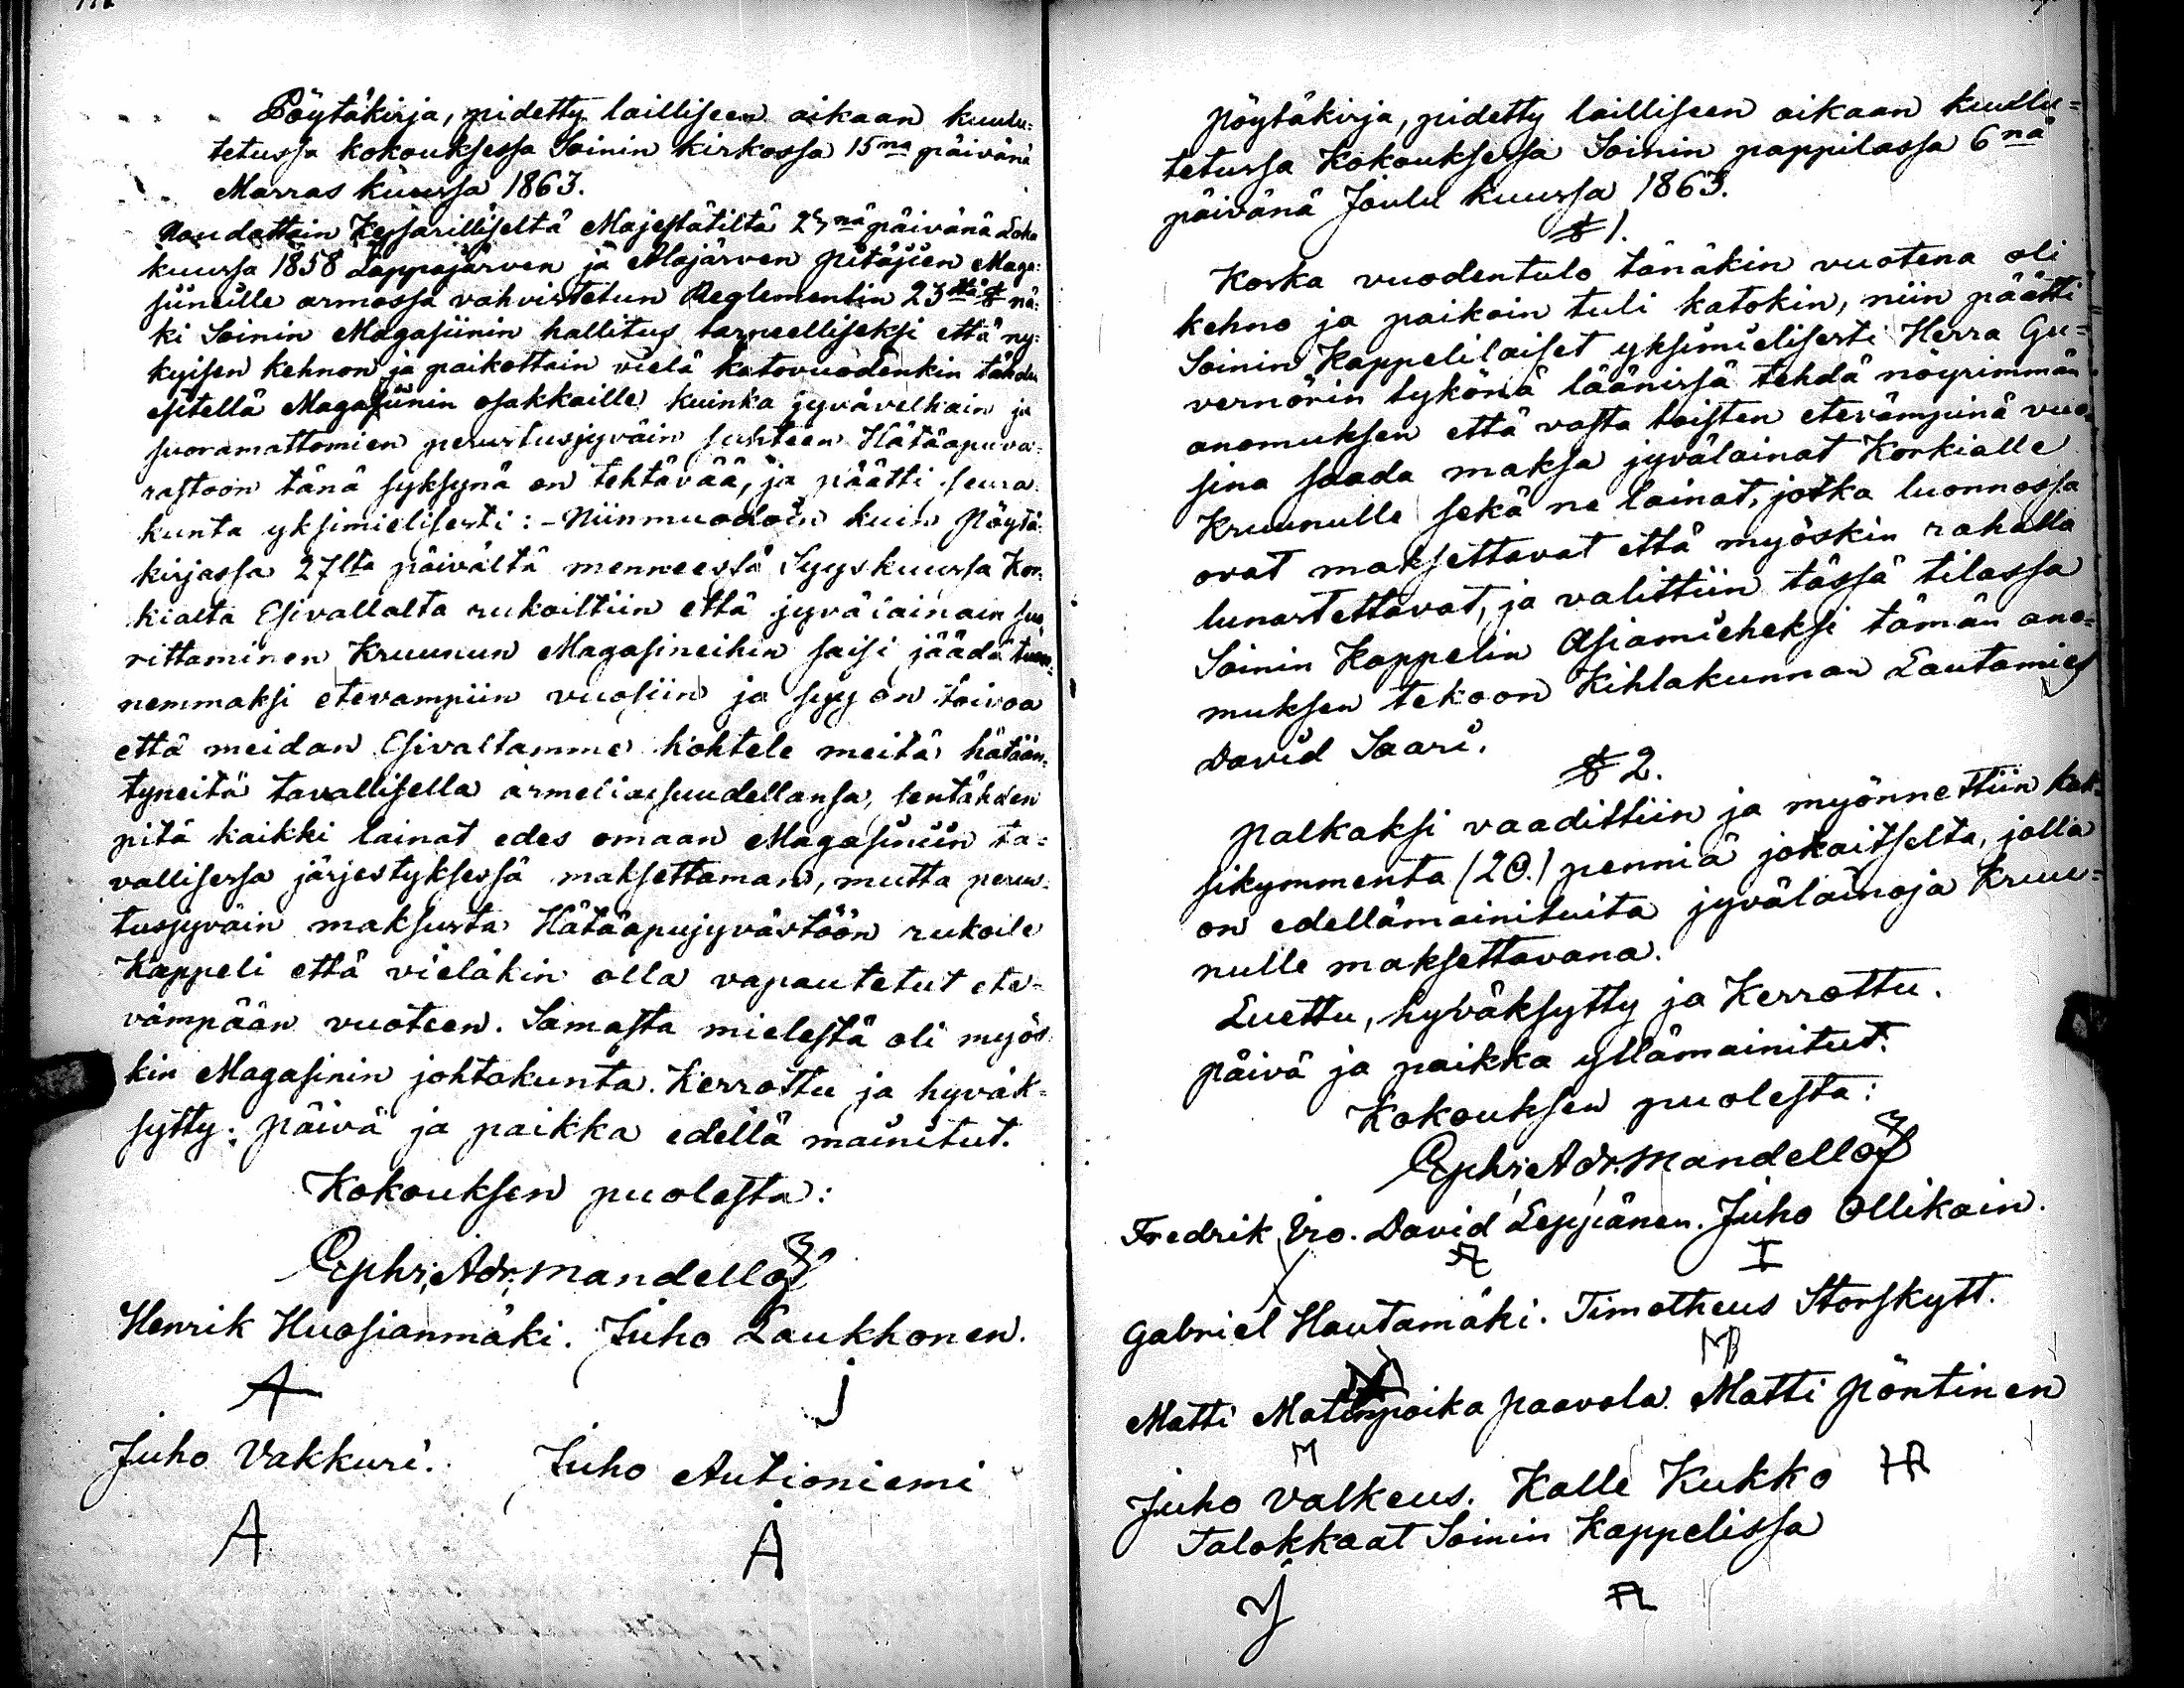 Pöytäkirja, pidetty lailliseen aikaan kuulu=
tetussa kokouksessa Soinin kirkossa 15na päivänä
Marras kuussa 1863.
Noudattain Keisarilliseltä Majestätiltä 23nä päivänä Loka
kuussa 1858 Lappajärven ja Alajärven pitäjien Maga=
siineille armossa vahvistetun Reglementin 23sta § nä=
ki Soinin Magasiinin hallitus tarpeelliseksi että ny=
kyisen kehnon ja paikottain vielä katovuodenkin tähden
esitellä Magasiinin osakkaille kuinka jyvävelkain ja
suoramattomien perustusjyväin suhteen Hätäapuva=
rastoon tänä syksynä on tehtävää, ja päätti seura=
kunta yksimielisesti: - Niinmuodoin kuin Pöytä=
kirjassa 27lta päivältä menneessä Syyskuussa Kor=
kialta Esivallalta rukoiltiin että jyvälainain suo=
rittaminen Kruunun Magasineihin saisi jäädä tuon=
nemmaksi etevampiin vuosiin ja syy on toivoa
että meidan Esivaltamme kohtele meitä hätään=
tyneitä tavallisella armeliaisuudellansa, sentähden
pitä kaikki lainat edes omaan Magasiniin ta=
vallisessa järjestyksessä maksettaman, mutta perus=
tusjyväin maksusta Hätäapujyvästöön rukoile
Kappeli että vieläkin olla vapautetut ete=
vämpään vuoteen. Samasta mielestä oli myös=
kin Magasinin johtokunta. Kerrottu ja hyväk=
sytty; Päivä ja paikka edellä mainitut.
Kokouksen puolesta:
Ephr. Adr. Mandellöf
Henrik Huosianmäki. Juho Laukkonen.
A J
Juho Vakkuri. Juho Autioniemi
A A
Pöytäkirja, pidetty lailliseen aikaan kuullu=
tetussa Kokouksessa Soinin pappilassa 6nä
päivänä Joulu kuussa 1863.
§ 1.
Koska vuodentulo tänäkin vuotena oli
kehno ja paikoin tuli katokin, niin päätti
Soinin Kappelilaiset yksimielisesti Herra Gu=
vernörin tykönä läänissä tehdä nöyrimmän
anomuksen että vasta toisten etevämpinä vuo=
sina saada maksa jyvälainat Korkialle
Kruunulle sekä ne lainat, jotka luonnossa
ovat maksettavat että myöskin rahalla
lunastettavat, ja valittiin tässä tilassa
Soinin Kappelin Asiamieheksi tämän ano=
muksen tekoon Kihlakunnan Lautamies
David Saari.
§ 2.
Palkaksi vaadittiin ja myönnettiin kak=
sikymmenta (20.) penniä jokaitselta, jolla
on edellämainituita jyvälainoja Kruu=
nulle maksettavana.
Luettu, hyväksytty ja Kerrottu.
päivä ja paikka yllämainitut.
Kokouksen puolesta:
Ephr. Adr. Mandellöf
Fredrik Iro. David Leppänen. Juho Ollikain.
I
Gabriel Hautamäki. Timotheus Storskytt.
MB
Matti Matinpoika Paavola. Matti Pöntinen
M
Juho Valkeus. Kalle Kukko
Talokkaat Soinin Kappelissa